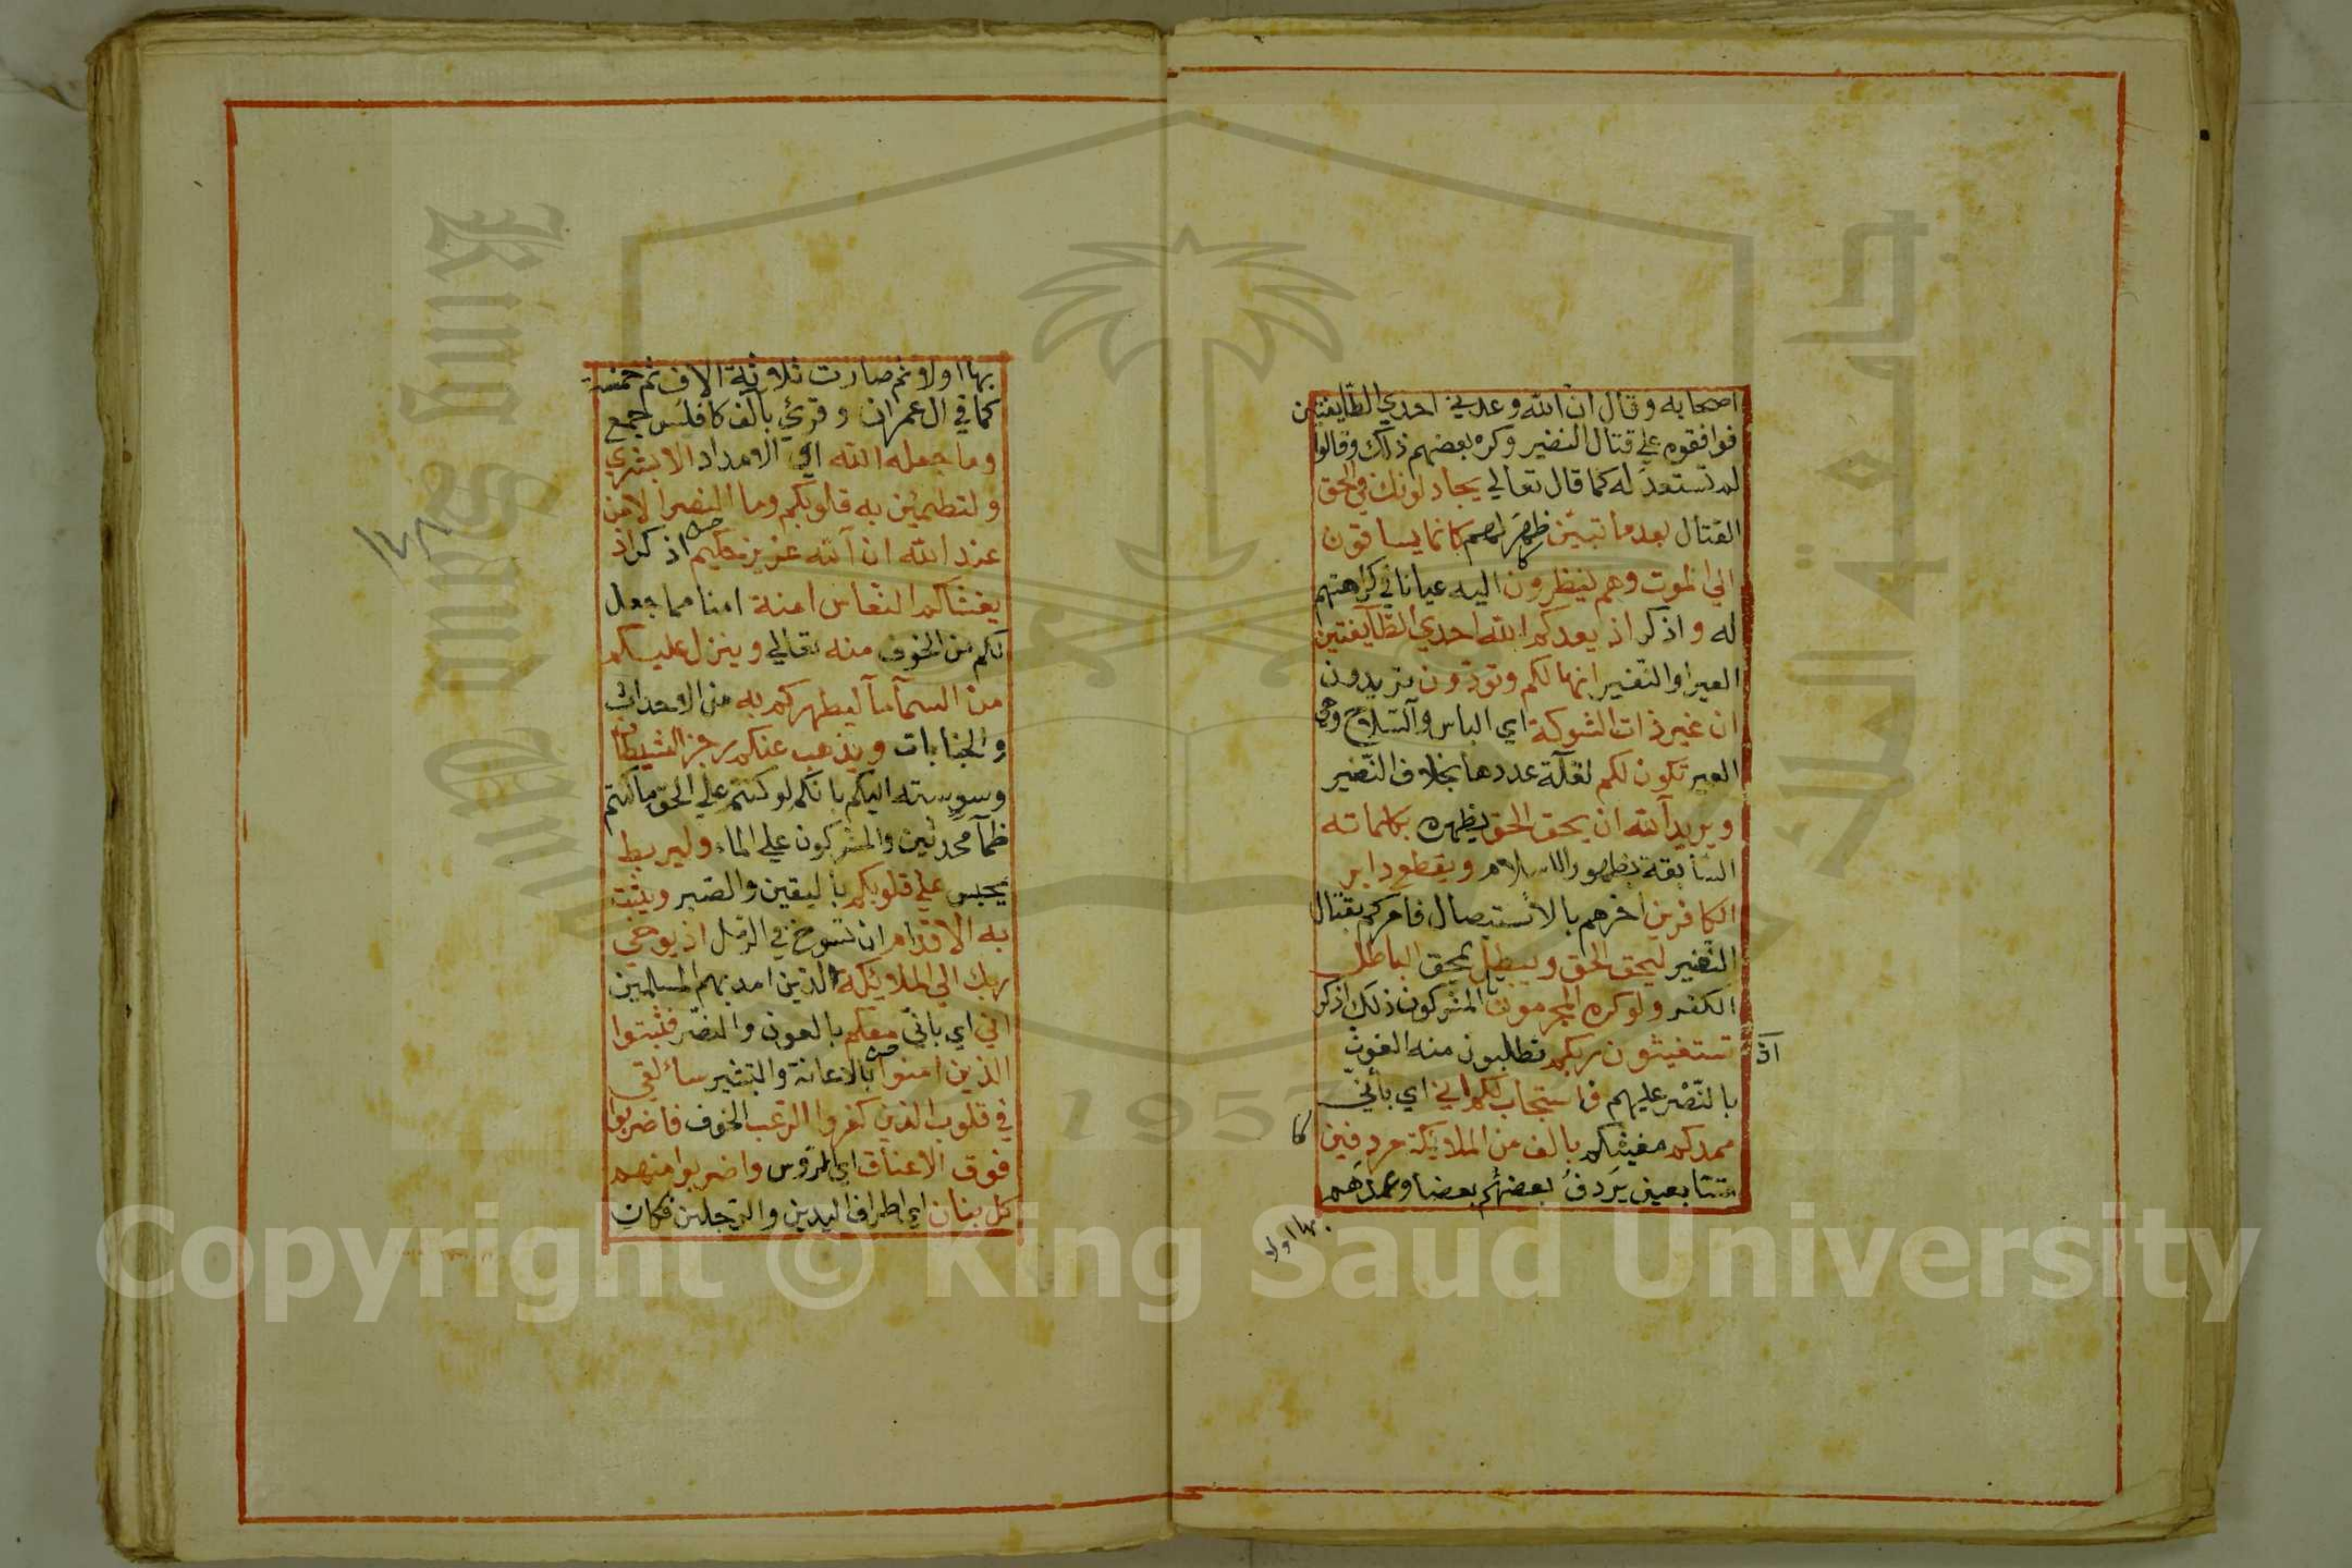 اصحابه وقال ان الله وعدني احدي الطايفتين
فوافقوه علي قتال النفير وكره بعضهم ذلك وقالوا
لم تستعد له كما قال تعالي يجادلونك في الحق
القتال بعد ما تبين ظهر لهم كانما يساقون
الي الموت وهم ينظرون اليه عيانا في كراهتهم
له واذكر اذ يعدكم الله احدي الطايفتين
العير او النفير انها لكم وتودون تريدون
ان غير ذات الشوكة اي الباس والسلاح وهي
العير تكون لكم لقلة عددها بخلاف النفير
ويريد الله ان يحق الحق يظهره بكلماته
السابقة بظهور الاسلام ويقطع دابر
الكافرين اخرهم بالاستيصال فامركم بقتال
النفير ليحق الحق ويبطل يمحق الباطل
الكفر ولو كره المجرمون المشركون ذلك اذكر
اذ
تستغيثون ربكم تطلبون منه الغوث
بالنصر عليهم فاستجاب لكم اني اي باني
ممدكم مغيثكم بالف من الملايكة مردفين
متتابعين يردف بعضهم بعضا وعدهم
بها اولا
بها اولا ثم صارت ثلاثة الاف ثم خمسة
كما في ال عمران وقرئ بآلف كافلس جمع
وما جعله الله اي الامداد الا بشري
ولتطمئن به قلوبكم وما النصر الا من
عند الله ان الله عزيز حكيم اذكر اذ
يغشاكم النعاس امنة امنا مما جعل
لكم من الخوف منه تعالي وينزل عليكم
من السمآ مآ ليطهركم به من الاحداث
والجنابات ويذهب عنكم رجز الشيطان
وسوسته اليكم بانكم لو كنتم علي الحق ما كنتم
ظمآ محدثين والمشركون علي الماء وليربط
يحبس علي قلوبكم باليقين والصبر ويثبت
به الاقدام ان تسوخ في الرمل اذ يوحي
ربك الي الملايكة الذين امد بهم المسلمين
اني اي باني معكم بالعون والنصر فثبتوا
الذين امنوا بالاعانة والتبشير سالقي
في قلوب الذين كفروا الرعب الخوف فاضربوا
فوق الاعناق اي الرؤس واضربوا منهم
كل بنان اي اطراف اليدين والرجلين فكان
King Saud University
1957
Copyright © King Saud University